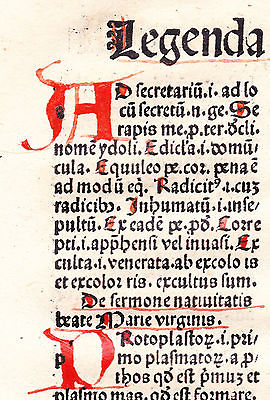 Legenda
AD secretariū. i. ad lo
cū secretū. n. ge. Se
rapis me. p. ter. dcli.
nomē ydoli. Edicla. i. domū/
cula. Equuleo pe. cor. pena ē
ad modū eq̄. Radicitꝰ. i. cuz
radicibꝰ. Inhumatū. i. inse/
pultū. Ex eadē pe. pō. Corre
pti. i. app̄hensi vel inuasi. Ex
culta. i. venerata. ab excolo is
et excolor ris. excultus sum.
De sermone natiuitatis
beate Marie virginis.
PRotoplastoꝝ. i. pri/
mo plasmatoꝝ. a p̄
thos qd̄ est p̄muz et
plasmo mas. qd̄ est formare.